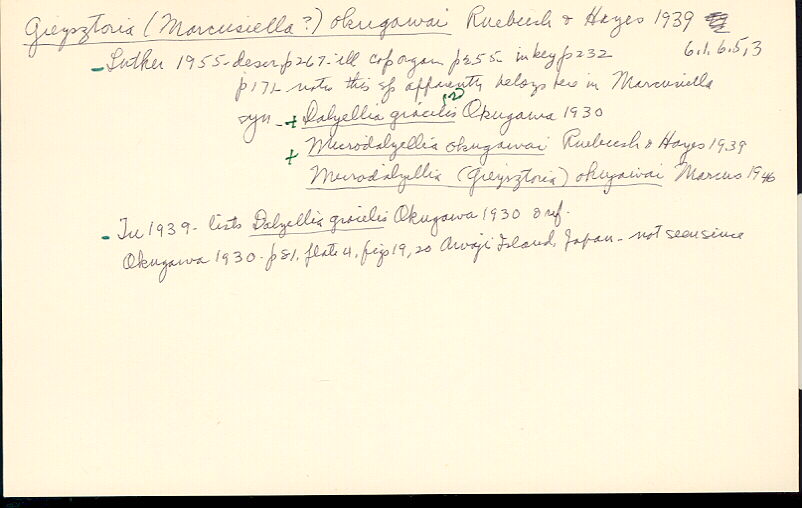 Gieysztoria (Marcusiella?) okugawai Ruebush & Hayes 1939
6.1.6.5,3
- Luther 1955 - descr p267 - ill cop organ p255 in key p232
p171 - notes this sp apparently belongs here in Marcusiella
syn - + Dalyellia gracilis Okugawa 1930
+ Microdalyellia okugawai Ruebush & Hayes 1939
Microdalyellia (Gieysztoria) okugawai Marcus 1946
- In 1939 - lists Dalyellia gracilis Okugawa 1930 & ref.
Okugawa 1930 - p81, plate 4, figs 19, 20 Awaji Island, Japan - not seen since